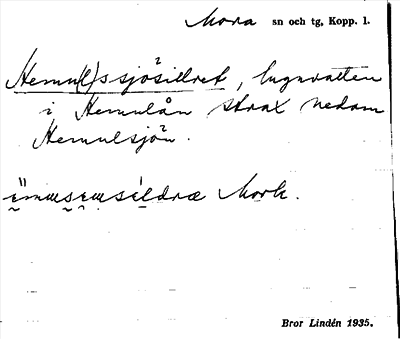 Mora sn och tg, Kopp. l.
Hemu(l)ssjösillret, lugnvatten
i Hemulån strax nedom
Hemulsjön.
Mork.
Bror Lindén 1935.